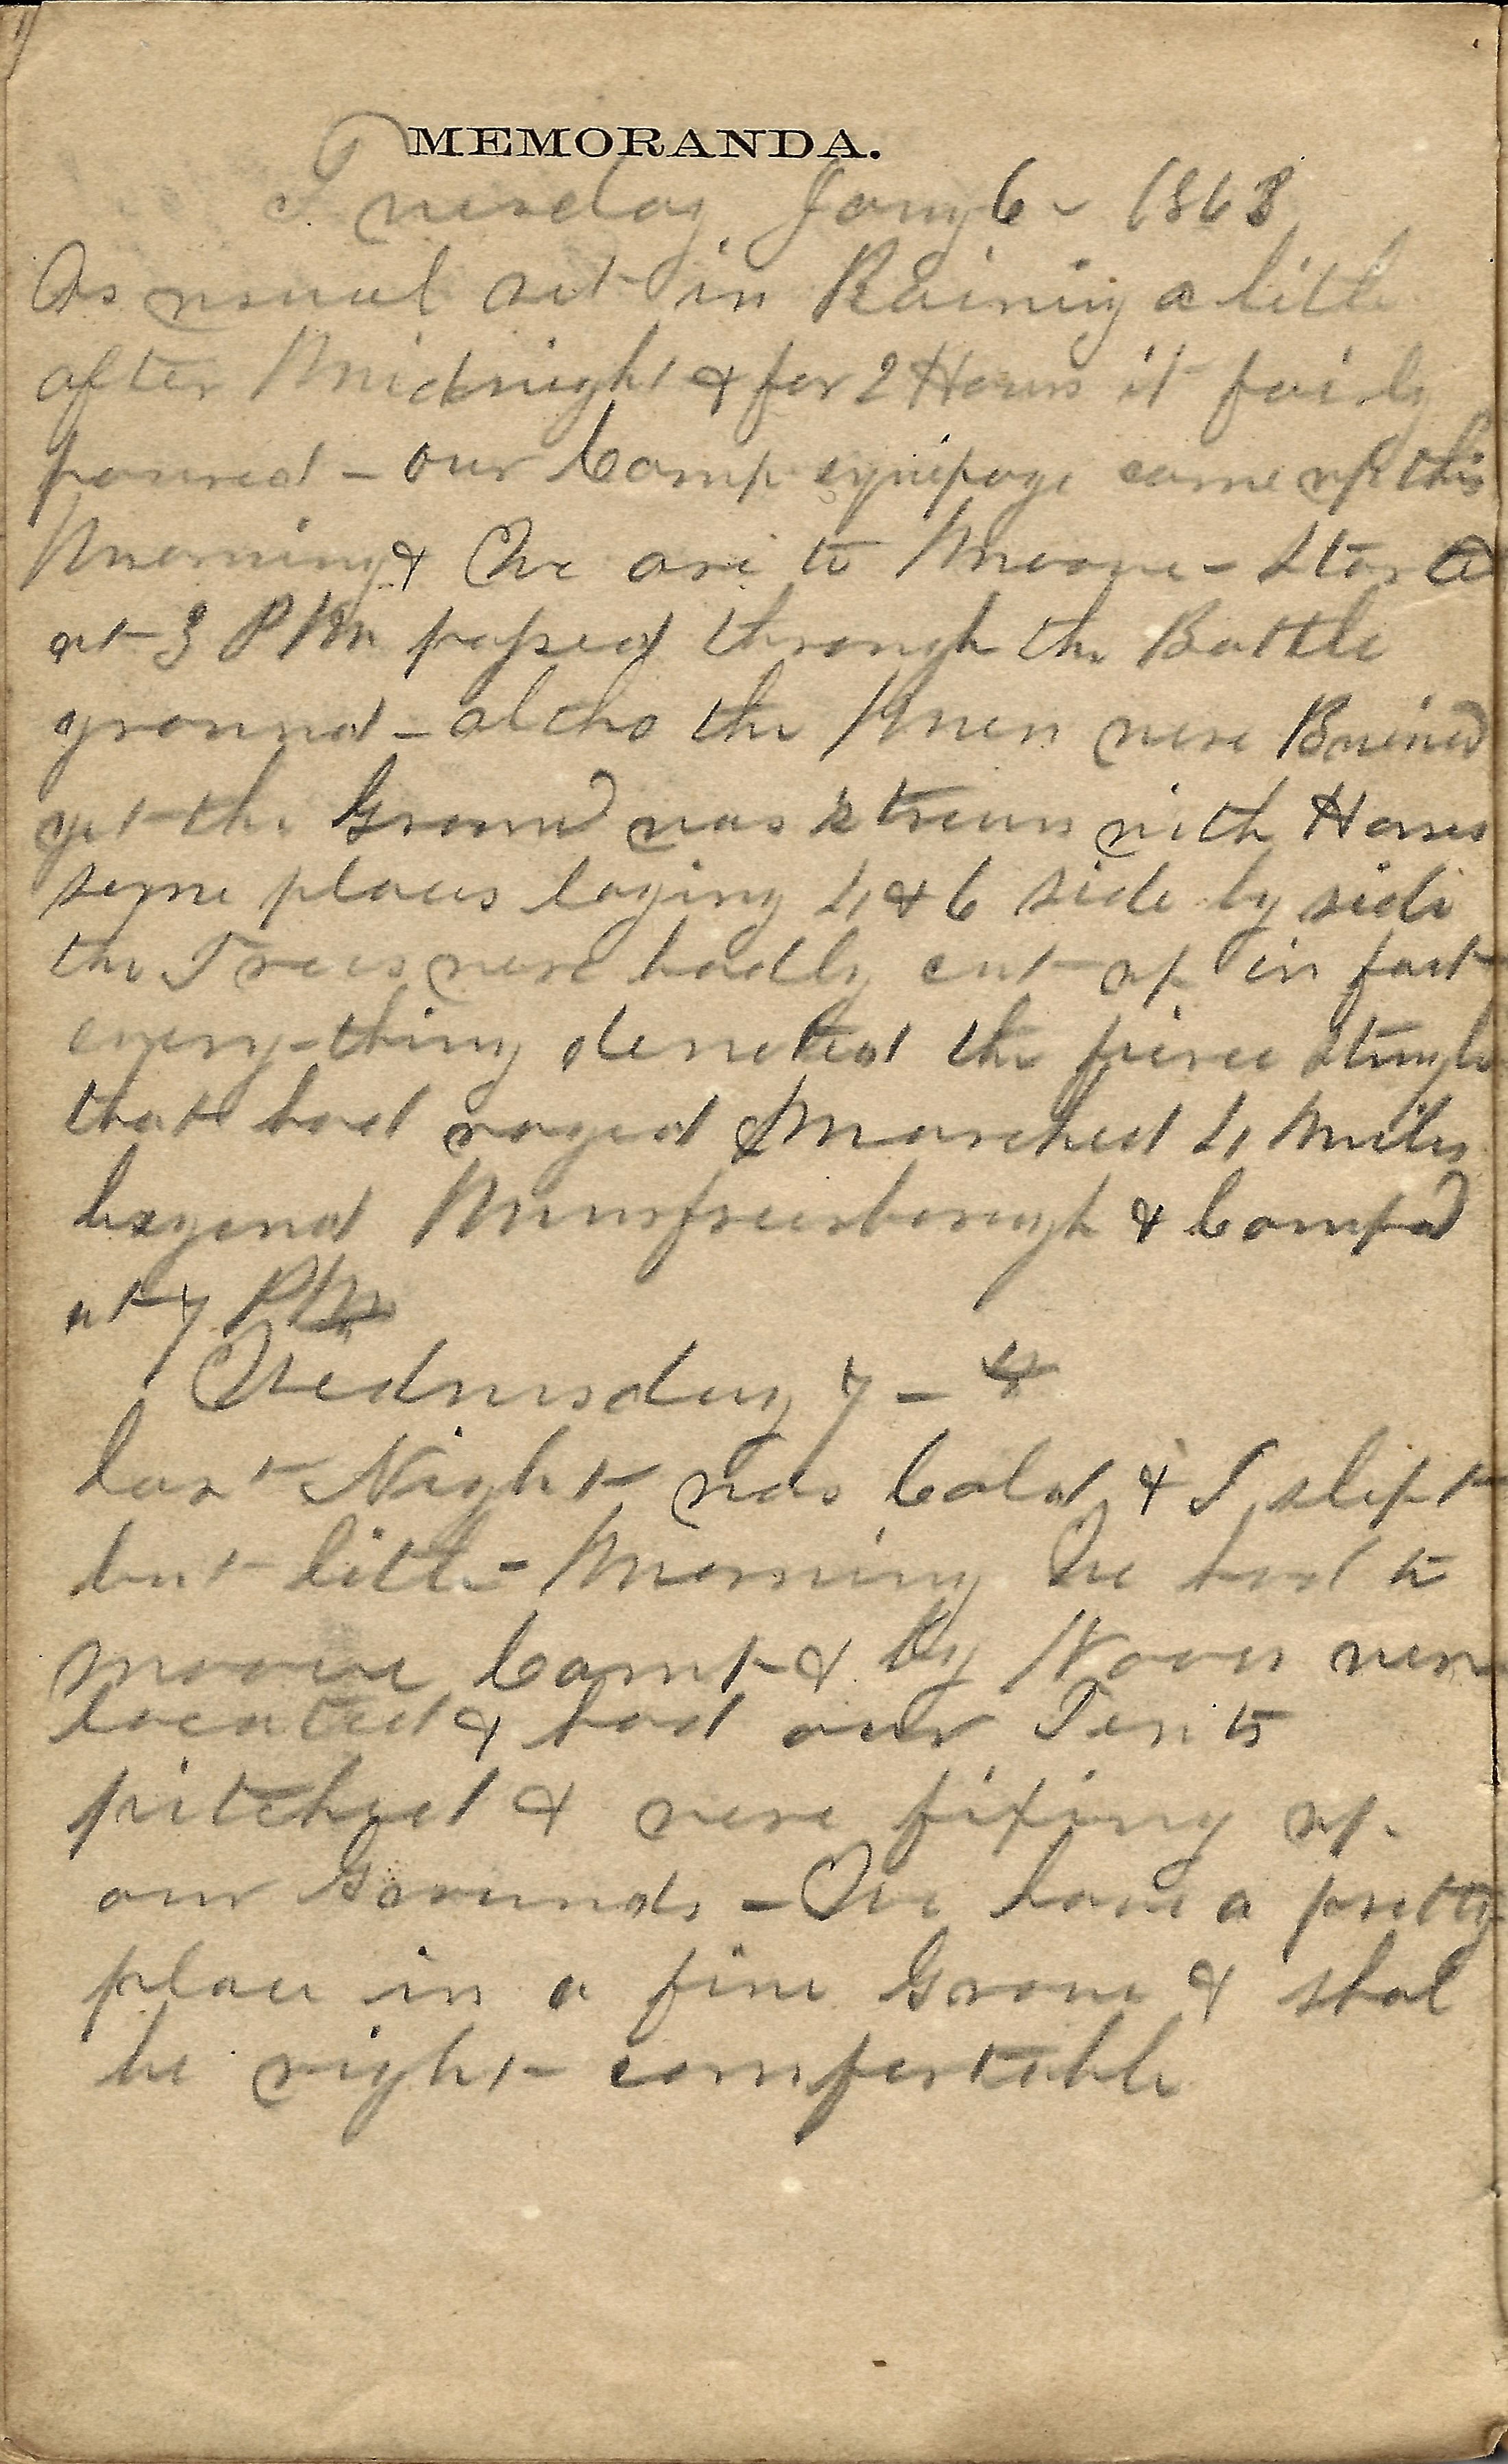 MEMORANDA.
Tuesday Jany 6 - 1863
As usual set in Raining a little
after Midnight & for 2 Hours it fairly
poured - our Camp equipage came up this
Morning & We are to Moove - Start
at 3 PM passed through the Battle
ground - altho the Men were Buried
yet the Ground was strewn with Horses
some places laying 4 & 6 side by side
the Trees were badly cut up in fact
every-thing denoted the fierce Strugle
that had raged & Marched 4 Miles
beyond Murfreesborough & Campd
at 7 PM
Wednesday 7 -
last Night was Cold & I slept
but little - Morning We had to
moove Camp & by Noon were
located & had our Tents
pitched & were fixing up
our Grounds - We have a pretty
place in a fine Grove & shal
be right comfortable